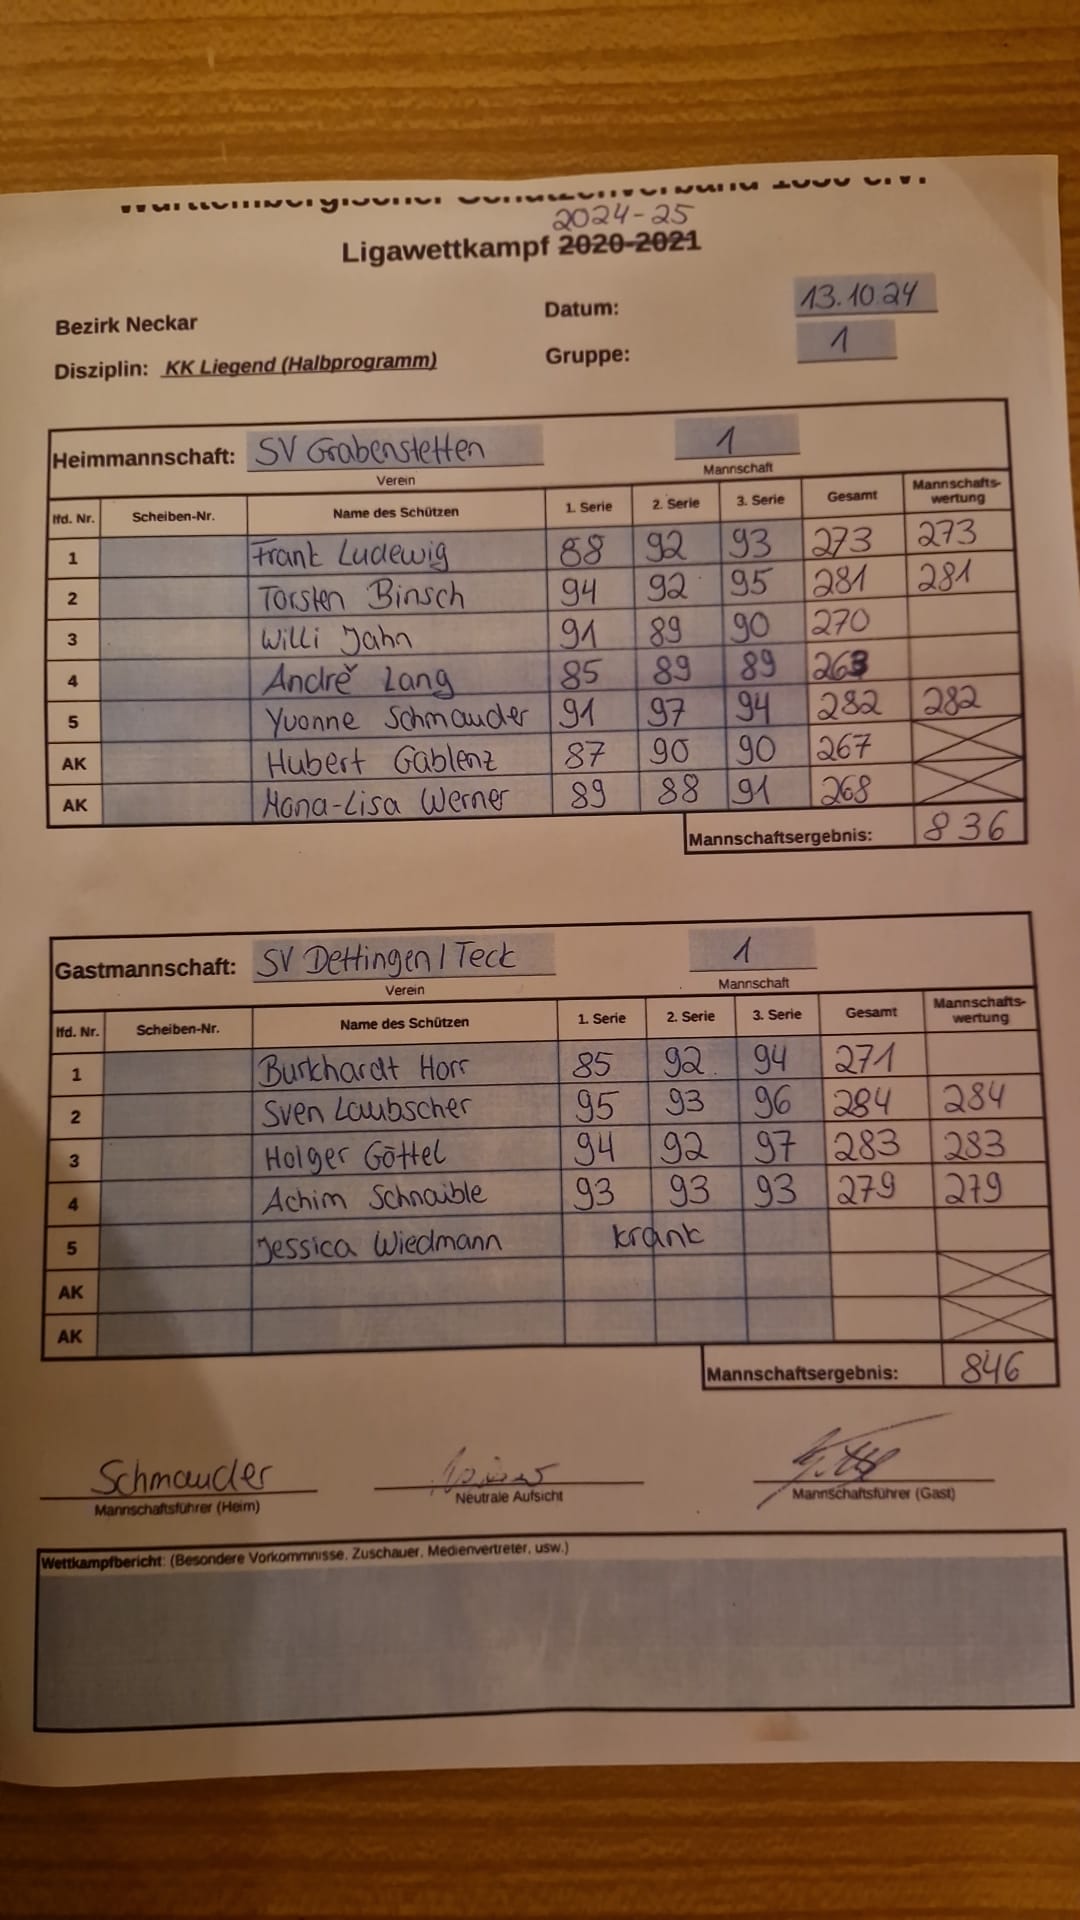 Württembergischer Schützenverband 1850 e.V.
2024-25
Ligawettkampf 2020-2021
Bezirk Neckar Datum: 13.10.24
Disziplin: KK Liegend (Halbprogramm) Gruppe: 1
Heimmannschaft: SV Grabenstetten 1
Verein Mannschaft
lfd. Nr. Scheiben-Nr. Name des Schützen 1. Serie 2. Serie 3. Serie Gesamt Mannschafts-wertung
1 Frank Ludewig 88 92 93 273 273
2 Torsten Binsch 94 92 95 281 281
3 Willi Jahn 91 89 90 270
4 André Lang 85 89 89 263
5 Yvonne Schmauder 91 97 94 282 282
AK Hubert Gablenz 87 90 90 267
AK Mona-Lisa Werner 89 88 91 268
Mannschaftsergebnis: 836
Gastmannschaft: SV Dettingen / Teck 1
Verein Mannschaft
lfd. Nr. Scheiben-Nr. Name des Schützen 1. Serie 2. Serie 3. Serie Gesamt Mannschafts-wertung
1 Burkhardt Horr 85 92 94 271
2 Sven Laubscher 95 93 96 284 284
3 Holger Göttel 94 92 97 283 283
4 Achim Schnaible 93 93 93 279 279
5 Jessica Wiedmann krank
AK
AK
Mannschaftsergebnis: 846
Schmauder
Mannschaftsführer (Heim) Neutrale Aufsicht Mannschaftsführer (Gast)
Wettkampfbericht: (Besondere Vorkommnisse, Zuschauer, Medienvertreter, usw.)